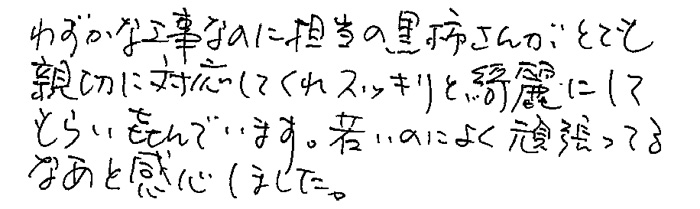 わずかな工事なのに担当の黒柿さんが、とても
親切に対応してくれスッキリと綺麗にして
もらい喜んでいます。若いのによく頑張ってる
なあと感心しました。